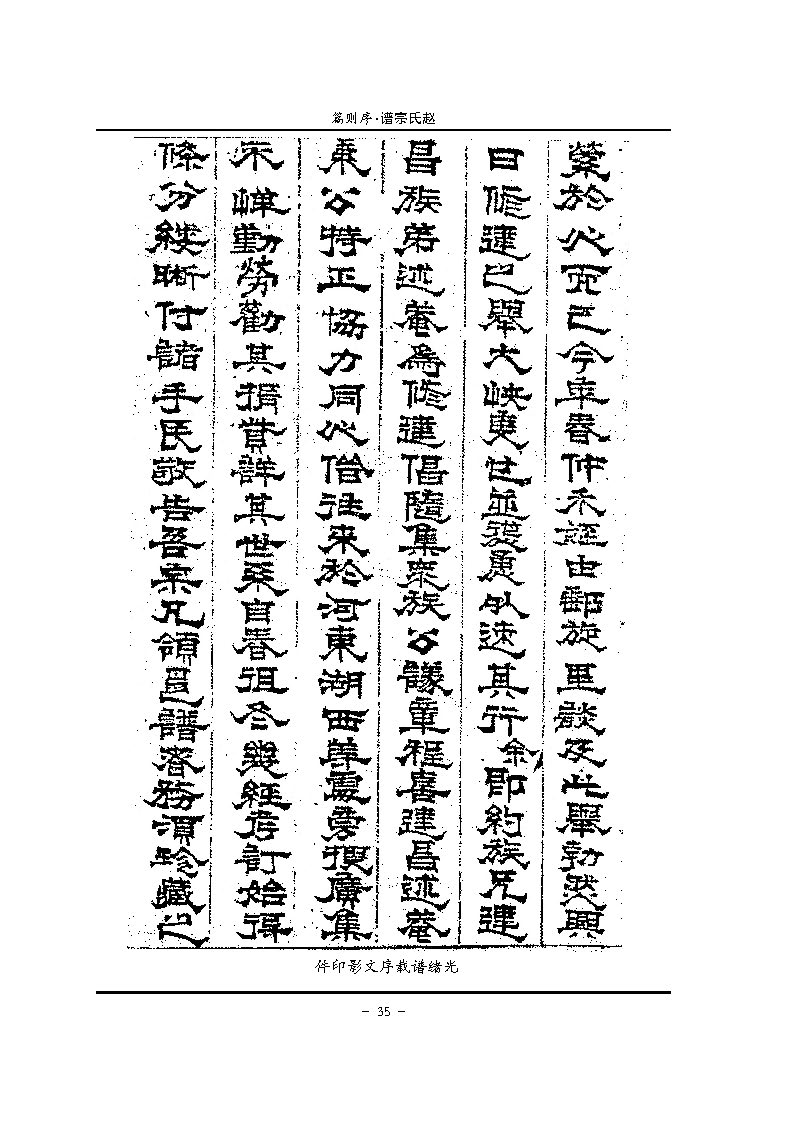 赵氏宗谱·序则篇
縈於心而已今年春仲禾謹由鄱旋里談及此舉勃然興
曰修建已舉大峽東也並幾勇以速其行余即約族兄建
昌族弟述菴為修建倡隨集衆族公議章程喜建昌述菴
秉公持正協力同心偕往來於河東湖西等處旁搜廣集
不憚勤勞勸其捐貲詳其世系自春徂冬幾經考訂始得
條分縷晰付諸手民敬告吾宗凡領邑譜者務須珍藏也
光绪谱载序文影印件
- 35 -